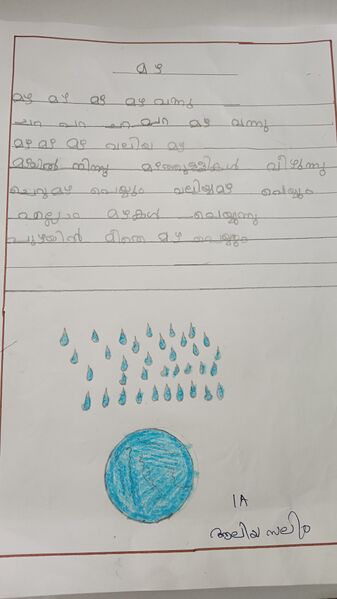 മഴ
മഴ മഴ മഴ മഴ വന്നു
ചറ പറ ചറ പറ മഴ വന്നു
മഴ മഴ മഴ വലിയ മഴ
മഴയിൽ നിന്നു മഴത്തുള്ളികൾ വീഴുന്നു
ചെറുമഴ പെയ്യും വലിയമഴ പെയ്യും
എല്ലാം മഴകൾ പെയ്യുന്നു
പുഴയിൽ മഴ പെയ്യും
1A
ആലിയ സലിം